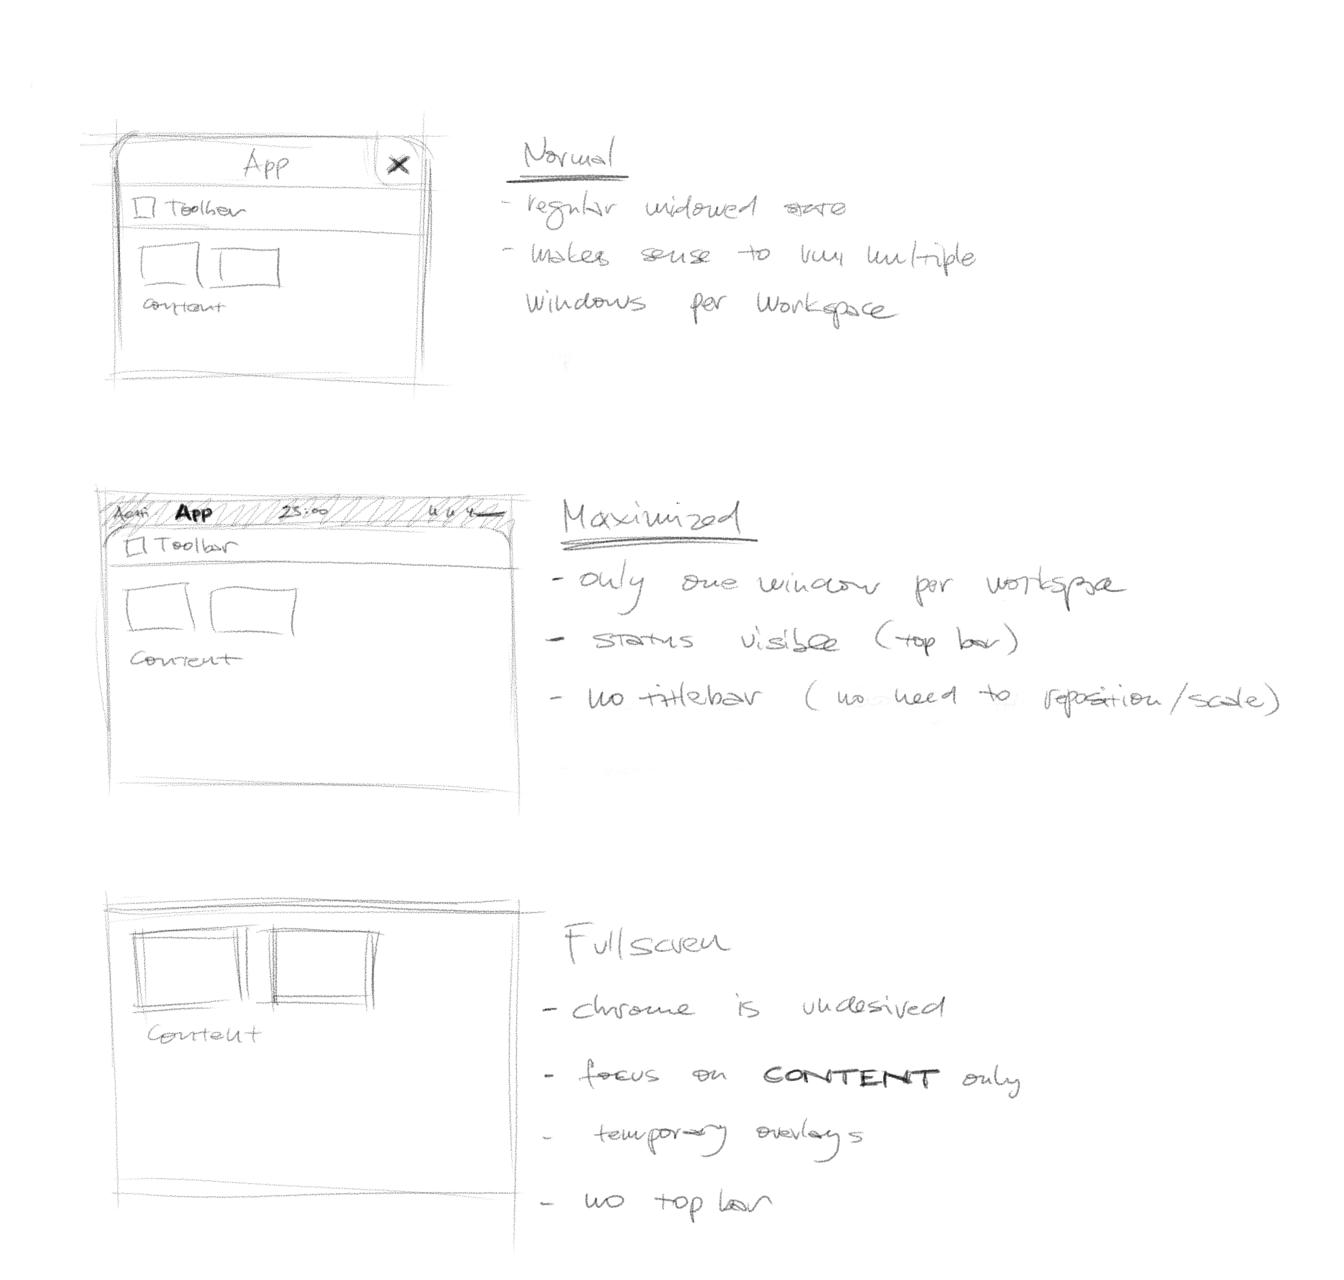 App ×
Toolbar
Content
Normal
- regular widowed state
- makes sense to run multiple
windows per workspace
App 25:00
Toolbar
Content
Maximized
- only one window per workspace
- status visible (top bar)
- no titlebar (no need to reposition/scale)
Content
Fullscreen
- chrome is undesired
- focus on CONTENT only
- temporary overlays
- no top bar